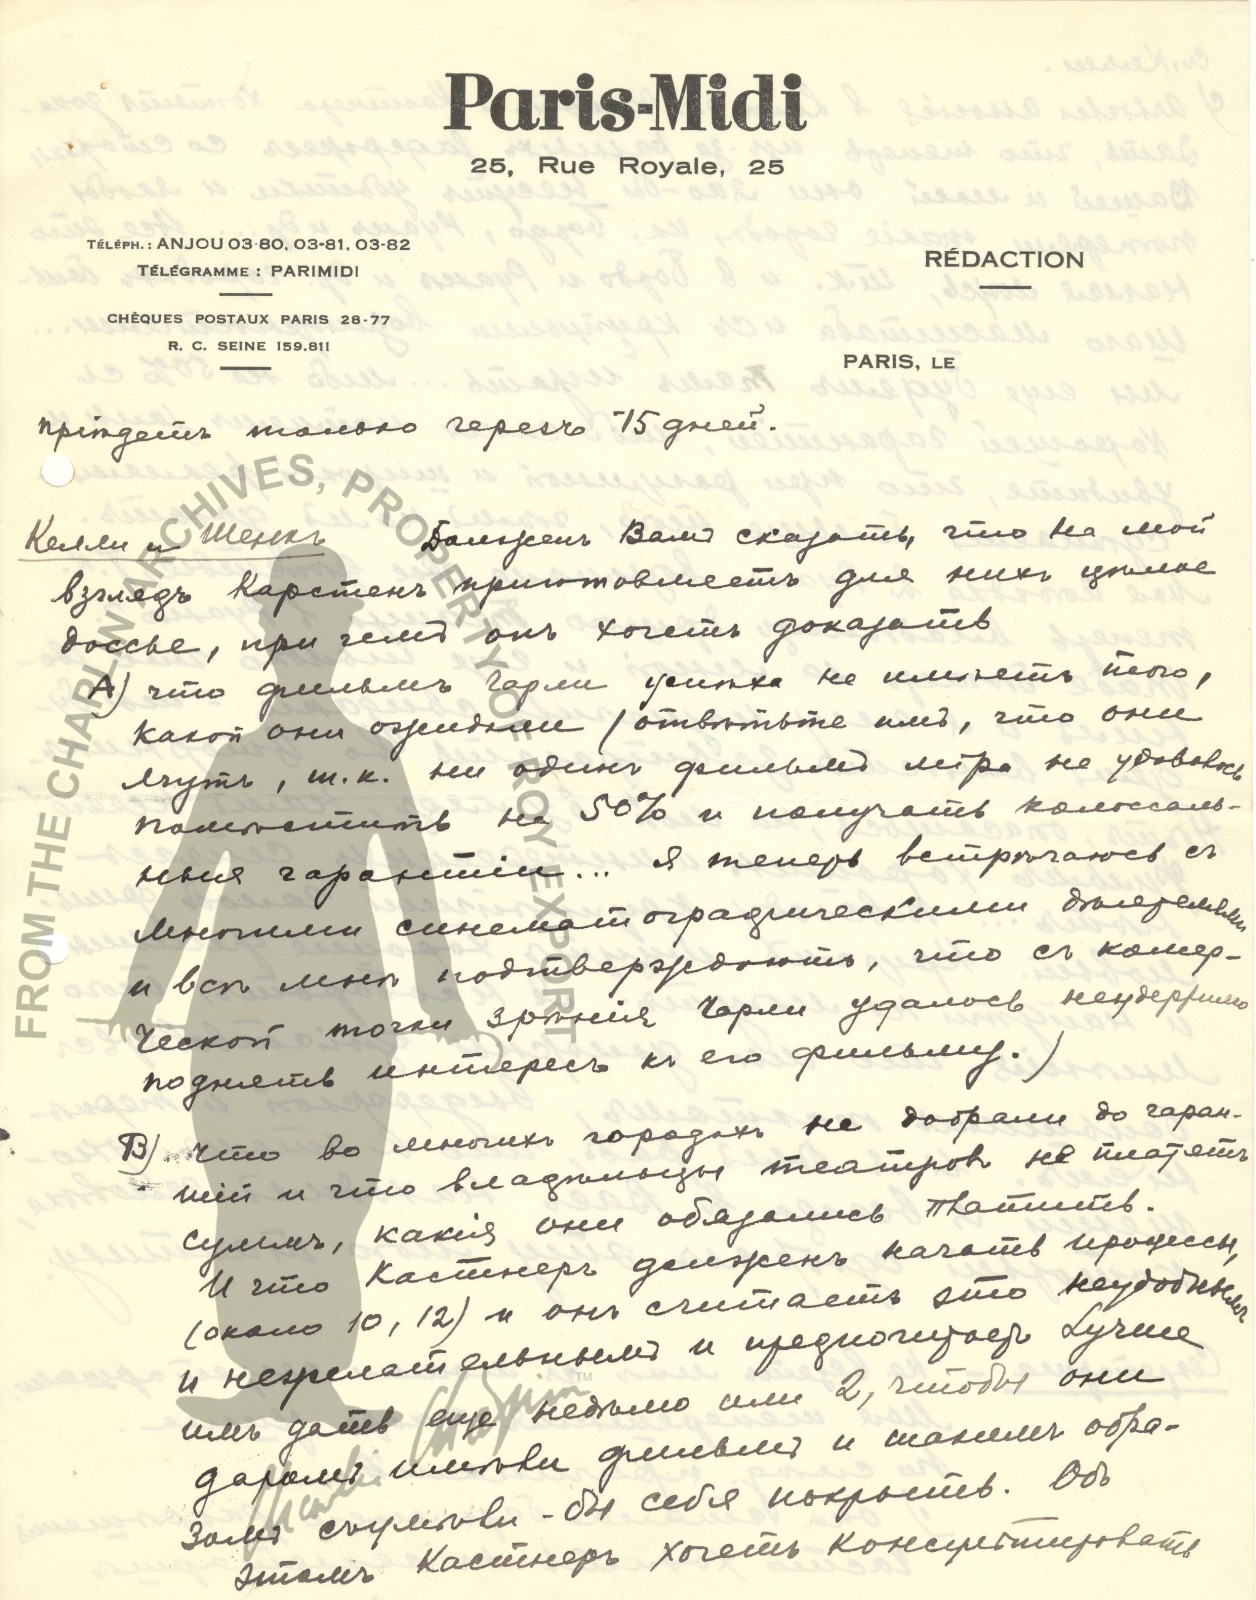 Paris-Midi
25, Rue Royale, 25
TÉLÉPH.: ANJOU 03-80, 03-81, 03-82
TÉLÉGRAMME : PARIMIDI
CHÈQUES POSTAUX PARIS 28-77
R. C. SEINE 159.811
RÉDACTION
PARIS, LE
пріѣдетъ только черезъ 15 дней.
Келли и Шенкъ Долженъ Вамъ сказать, что на мой
взглядъ Карстенъ приготовляетъ для нихъ цѣлое
доссье, при чемъ онъ хочетъ доказать
А) что фильмъ Чарли успѣха не имѣетъ того,
какой они ожидали (отвѣтьте имъ, что они
лгутъ, т.к. ни одинъ фильмъ міра не удовалось
помѣстить на 50% и получать колоссаль-
ныя гарантіи... Я теперь встрѣчаюсь съ
многими синематографическими дѣятелями
и всѣ мнѣ подтверждаютъ, что съ комер-
ческой точки зрѣнія Чарли удалось неудержимо
поднять интересъ къ его фильму.)
В) что во многихъ городахъ не добрали до гаран-
тій и что владѣльцы театровъ не платятъ
суммъ, какія они обязались платить.
И что Кастнеръ долженъ начать процессы,
(около 10, 12) и онъ считаетъ это неудобнымъ
и нежелательнымъ и предпочитаетъ лучше
имъ дать еще недѣлю или 2, чтобы они
даромъ имѣли фильмъ и такимъ обра-
зомъ съумѣли-бы себя покрыть. Объ
этомъ Кастнеръ хочетъ консультировать
FROM THE CHAPLIN ARCHIVES, PROPERTY OF ROY EXPORT
Charlie Chaplin™